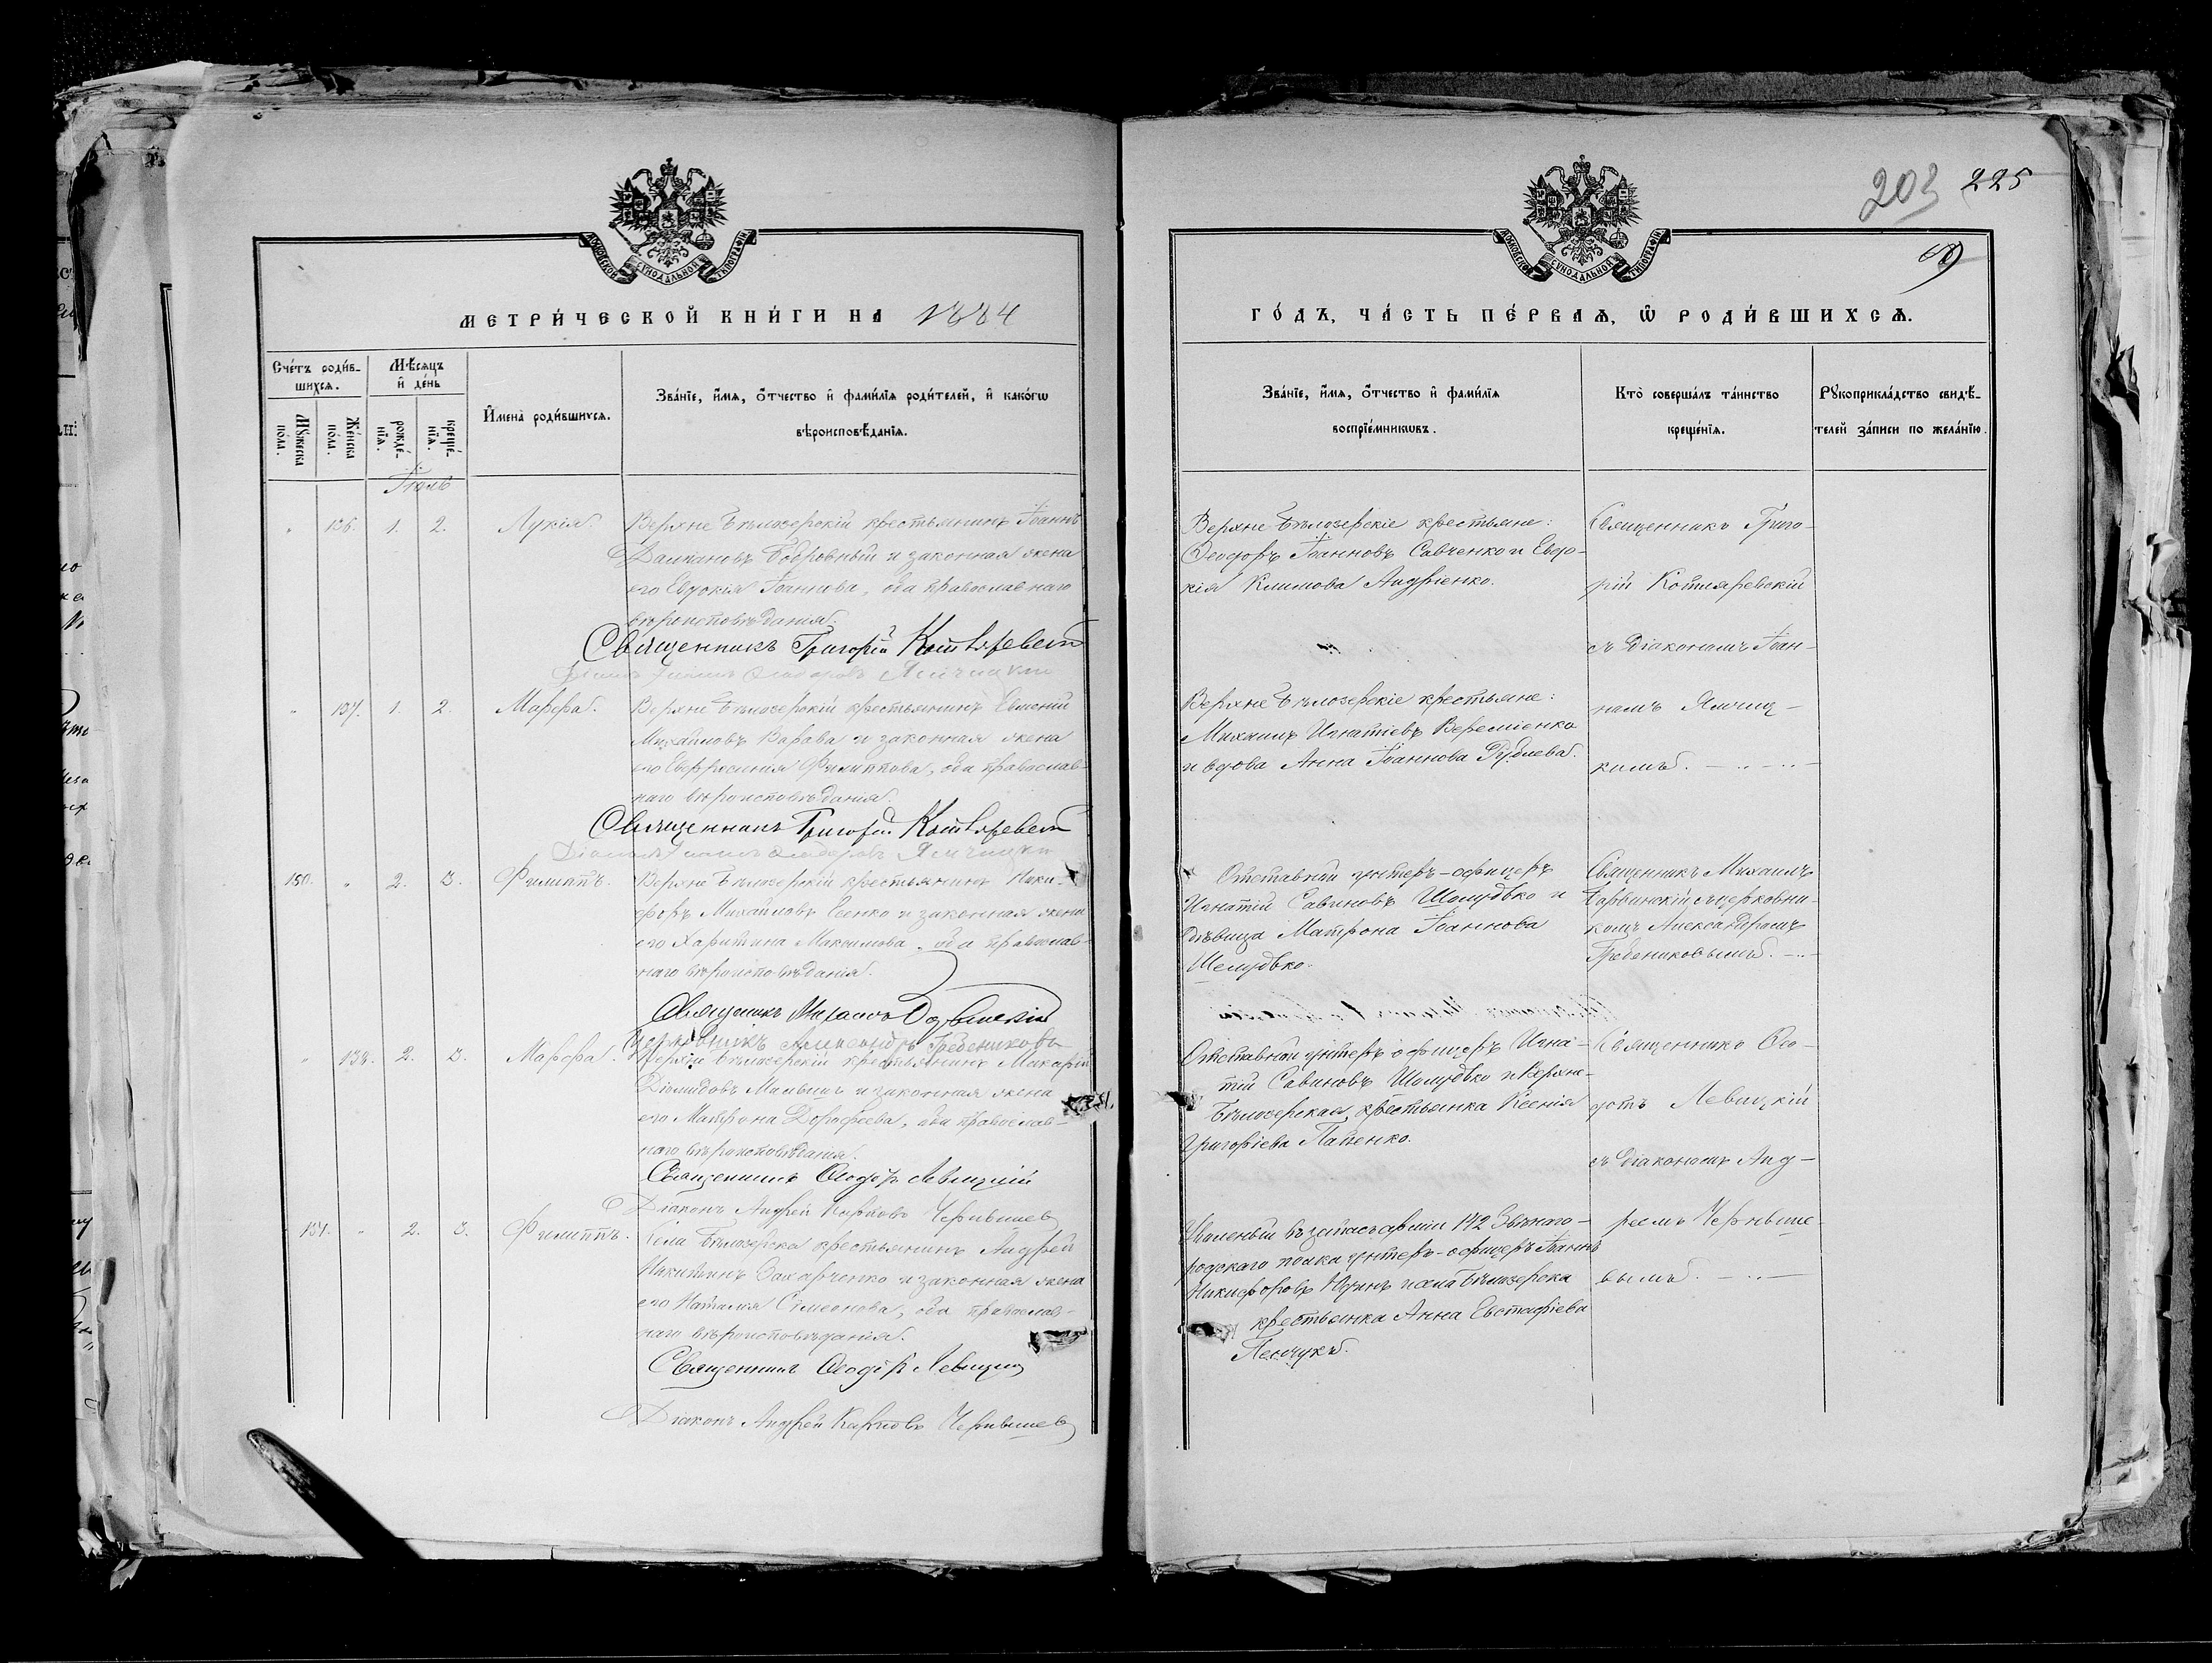 203 225
69
МОСКОВСКОЙ СѴНОДАЛЬНОЙ ТИПОГРАФІИ
МОСКОВСКОЙ СѴНОДАЛЬНОЙ ТИПОГРАФІИ
МЕТРИ́ЧЕСКОЙ КНИ́ГИ НА 1884
ГО́ДЪ, ЧА́СТЬ ПЕ́РВАѦ, Ѡ РОДИ́ВШИХСѦ.
Сче́тъ роди́в-
шихсѧ.
Мꙋ́жеска по́ла.
Же́нска по́ла.
Мѣ́сѧцъ
и҆ де́нь
рожде́-
нїѧ.
креще́-
нїѧ.
И҆мена̀ роди́вшихсѧ.
Зва́нїе, и҆́мѧ, ѻ҆́тчество и҆ фами́лїѧ роди́телей, и҆ како́гѡ
вѣроисповѣ́данїѧ.
Зва́нїе, и҆́мѧ, ѻ҆́тчество и҆ фами́лїѧ
воспрїе́мникѡвъ.
Кто̀ соверша́лъ та́инство
креще́нїѧ.
Рꙋкоприкла́дство свидѣ́-
телей за́писи по жела́нїю.
Іюль
" 136. 1. 2. Лукія.
Верхне Бѣлозерскій крестьянинъ Іоаннъ
Бобровный и законная жена
его Евдокія Іоаннова, оба православнаго
вѣроисповѣданія.
Священникъ Григорій Котляревскій
Верхне Бѣлозерскіе крестьяне:
Ѳеодоръ Іоанновъ Савченко и Евдо-
кія Климова Андріенко.
Священникъ Григо-
рій Котляревскій
съ Діакономъ Іоан-
номъ Ямчиц-
кимъ.
" 137. 1. 2. Марѳа.
Верхне Бѣлозерскій крестьянинъ Евменій
Михайловъ Варава и законная жена
его Евфросинія Филиппова, оба православ-
наго вѣроисповѣданія.
Священникъ Григорій Котляревскій
Верхне Бѣлозерскіе крестьяне:
Михаилъ Игнатіевъ Веремієнко
и вдова Анна Іоаннова Рублева.
150. " 2. 3. Филиппъ.
Верхне Бѣлозерскій крестьянинъ Ники-
форъ Михайловъ Еценко и законная жена
его Харитина Максимова, оба православ-
наго вѣроисповѣданія.
Священникъ Михаилъ
Церковникъ Александръ Гребениковъ
Отставный унтеръ-офицеръ
Игнатій Савиновъ Шолудько и
дѣвица Матрона Іоаннова
Шелудько.
Священникъ Михаилъ
съ церковни-
комъ Александромъ
Гребениковымъ.
" 138. 2. 3. Марѳа.
Верхне Бѣлозерскій крестьянинъ Макарій
Діомидовъ и законная жена
его Матрона Дороѳеева, оба православ-
наго вѣроисповѣданія.
Священникъ Ѳеодотъ Левицкій
Діаконъ Андрей Карповъ Чернышевъ
Отставной унтеръ офицеръ Игна-
тій Савиновъ Шолудько и Верхне-
Бѣлозерская крестьянка Ксенія
Григоріева Папенко.
Священникъ Ѳео-
дотъ Левицкій
съ діакономъ Анд-
реемъ Черныше-
вымъ.
151. " 2. 3. Филиппъ.
Села Бѣлозерка крестьянинъ Андрей
Никитинъ Захарченко и законная жена
его Наталія Сѵмеонова, оба православ-
наго вѣроисповѣданія.
Священникъ Ѳеодотъ Левицкій
Діаконъ Андрей Карповъ Чернышевъ
Уволеный въ запасъ арміи 142 Звѣниго-
родскаго полка унтеръ-офицеръ Іоаннъ
Никифоровъ и села Бѣлозерка
крестьянка Анна Евстафіева